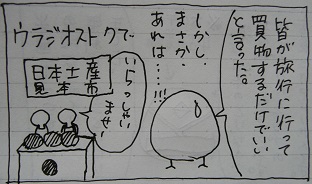 皆が旅行に行って
買物するだけでいい
と言った。
しかし、
まさか、
あれは……!!!
ウラジオストクで
日本土産
見本市
いらっしゃい
ませい